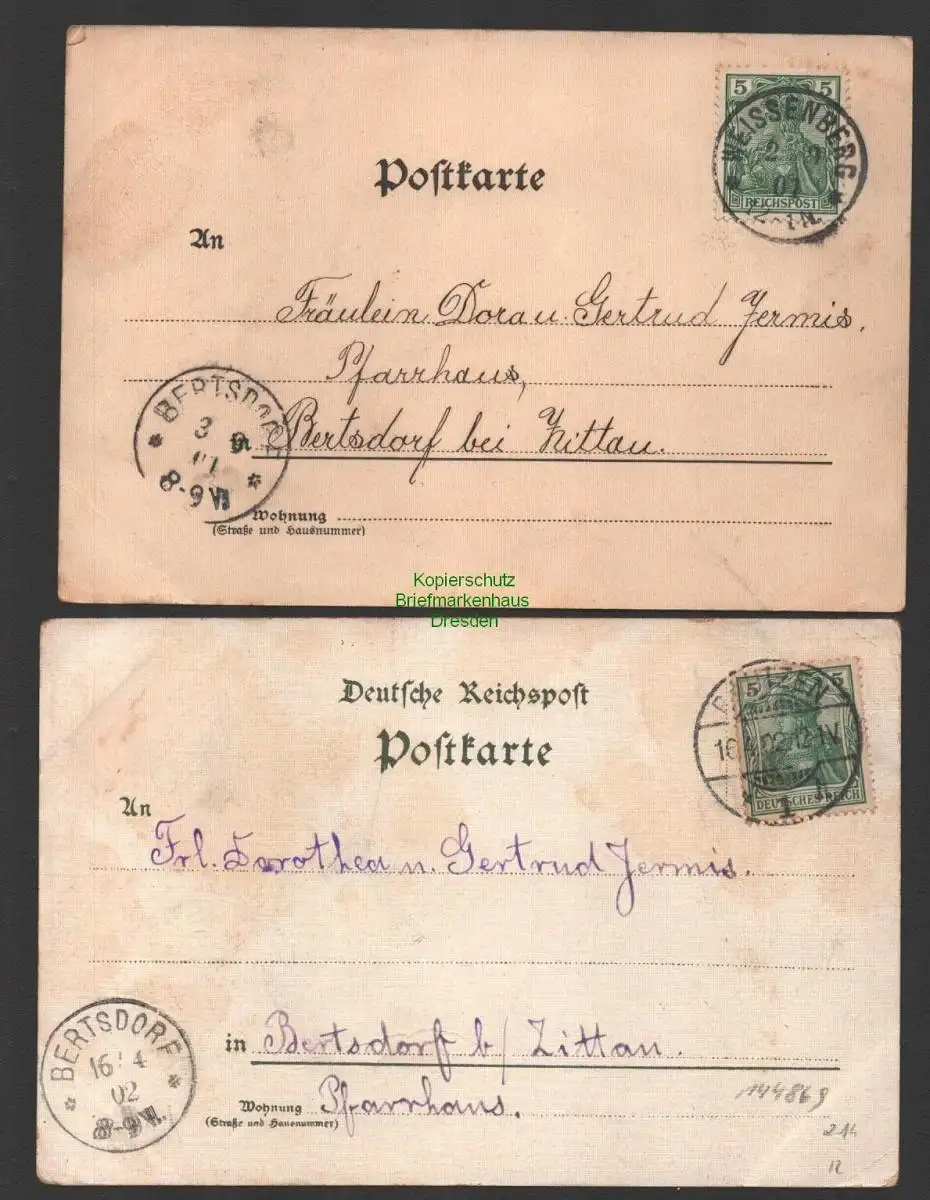 5 5
REICHSPOST
* WEISSENBERG *
2 9
01
12-1N.
Postkarte
An
Fräulein Dora u. Gertrud Jermis,
Pfarrhaus,
in Bertsdorf bei Zittau.
* BERTSDORF *
3 9
01
8-9V
Wohnung
(Straße und Hausnummer)
Kopierschutz
Briefmarkenhaus
Dresden
Deutsche Reichspost
Postkarte
5 5
DEUTSCHES REICH
BAUTZEN
16.4.02.12-1V.
1
An
Frl. Dorothea u. Gertrud Jermis.
in Bertsdorf b/ Zittau.
Wohnung Pfarrhaus.
(Straße und Hausnummer)
* BERTSDORF *
16 4
02
8-9V.
144869
12